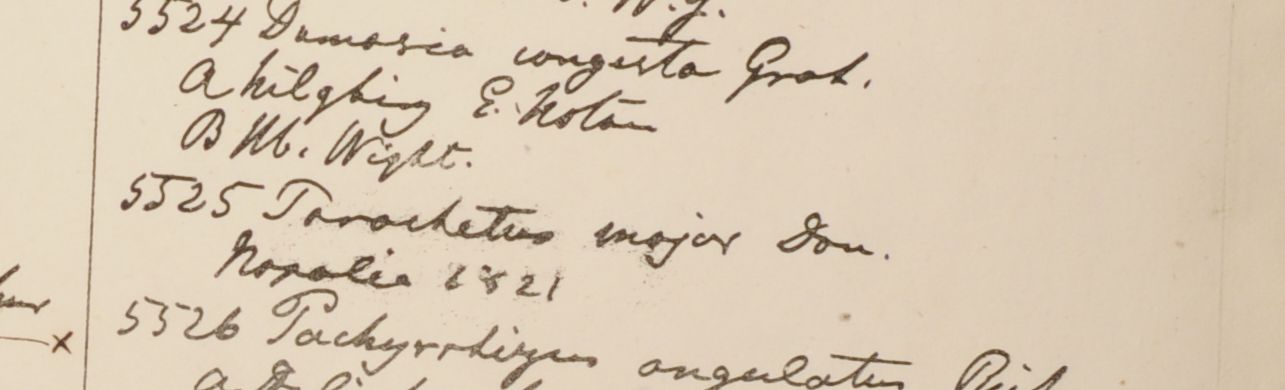 W. G.
5524 Dumasia congesta Grah.
A Nilghiry E. Noton
B Hb. Wight.
5525 Parochetus major Don.
Napalia 1821
5526 Pachyrrhizus angulatus Rich